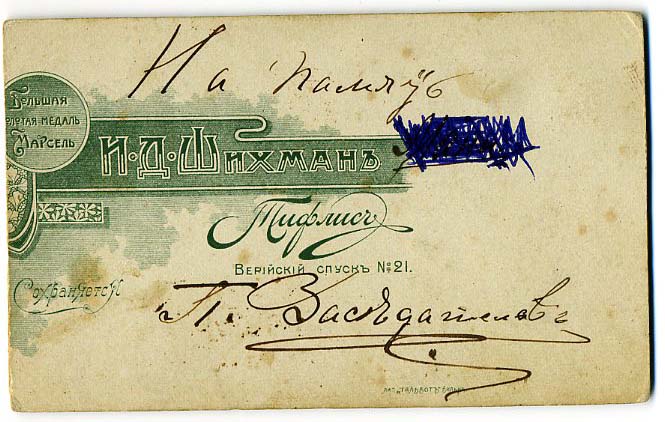 На память
Большая
золотая медаль
Марсель
И·Д·Шихманъ
Тифлисъ
Верійскій спускъ №21.
Сохраняется
П. Засѣдателевъ